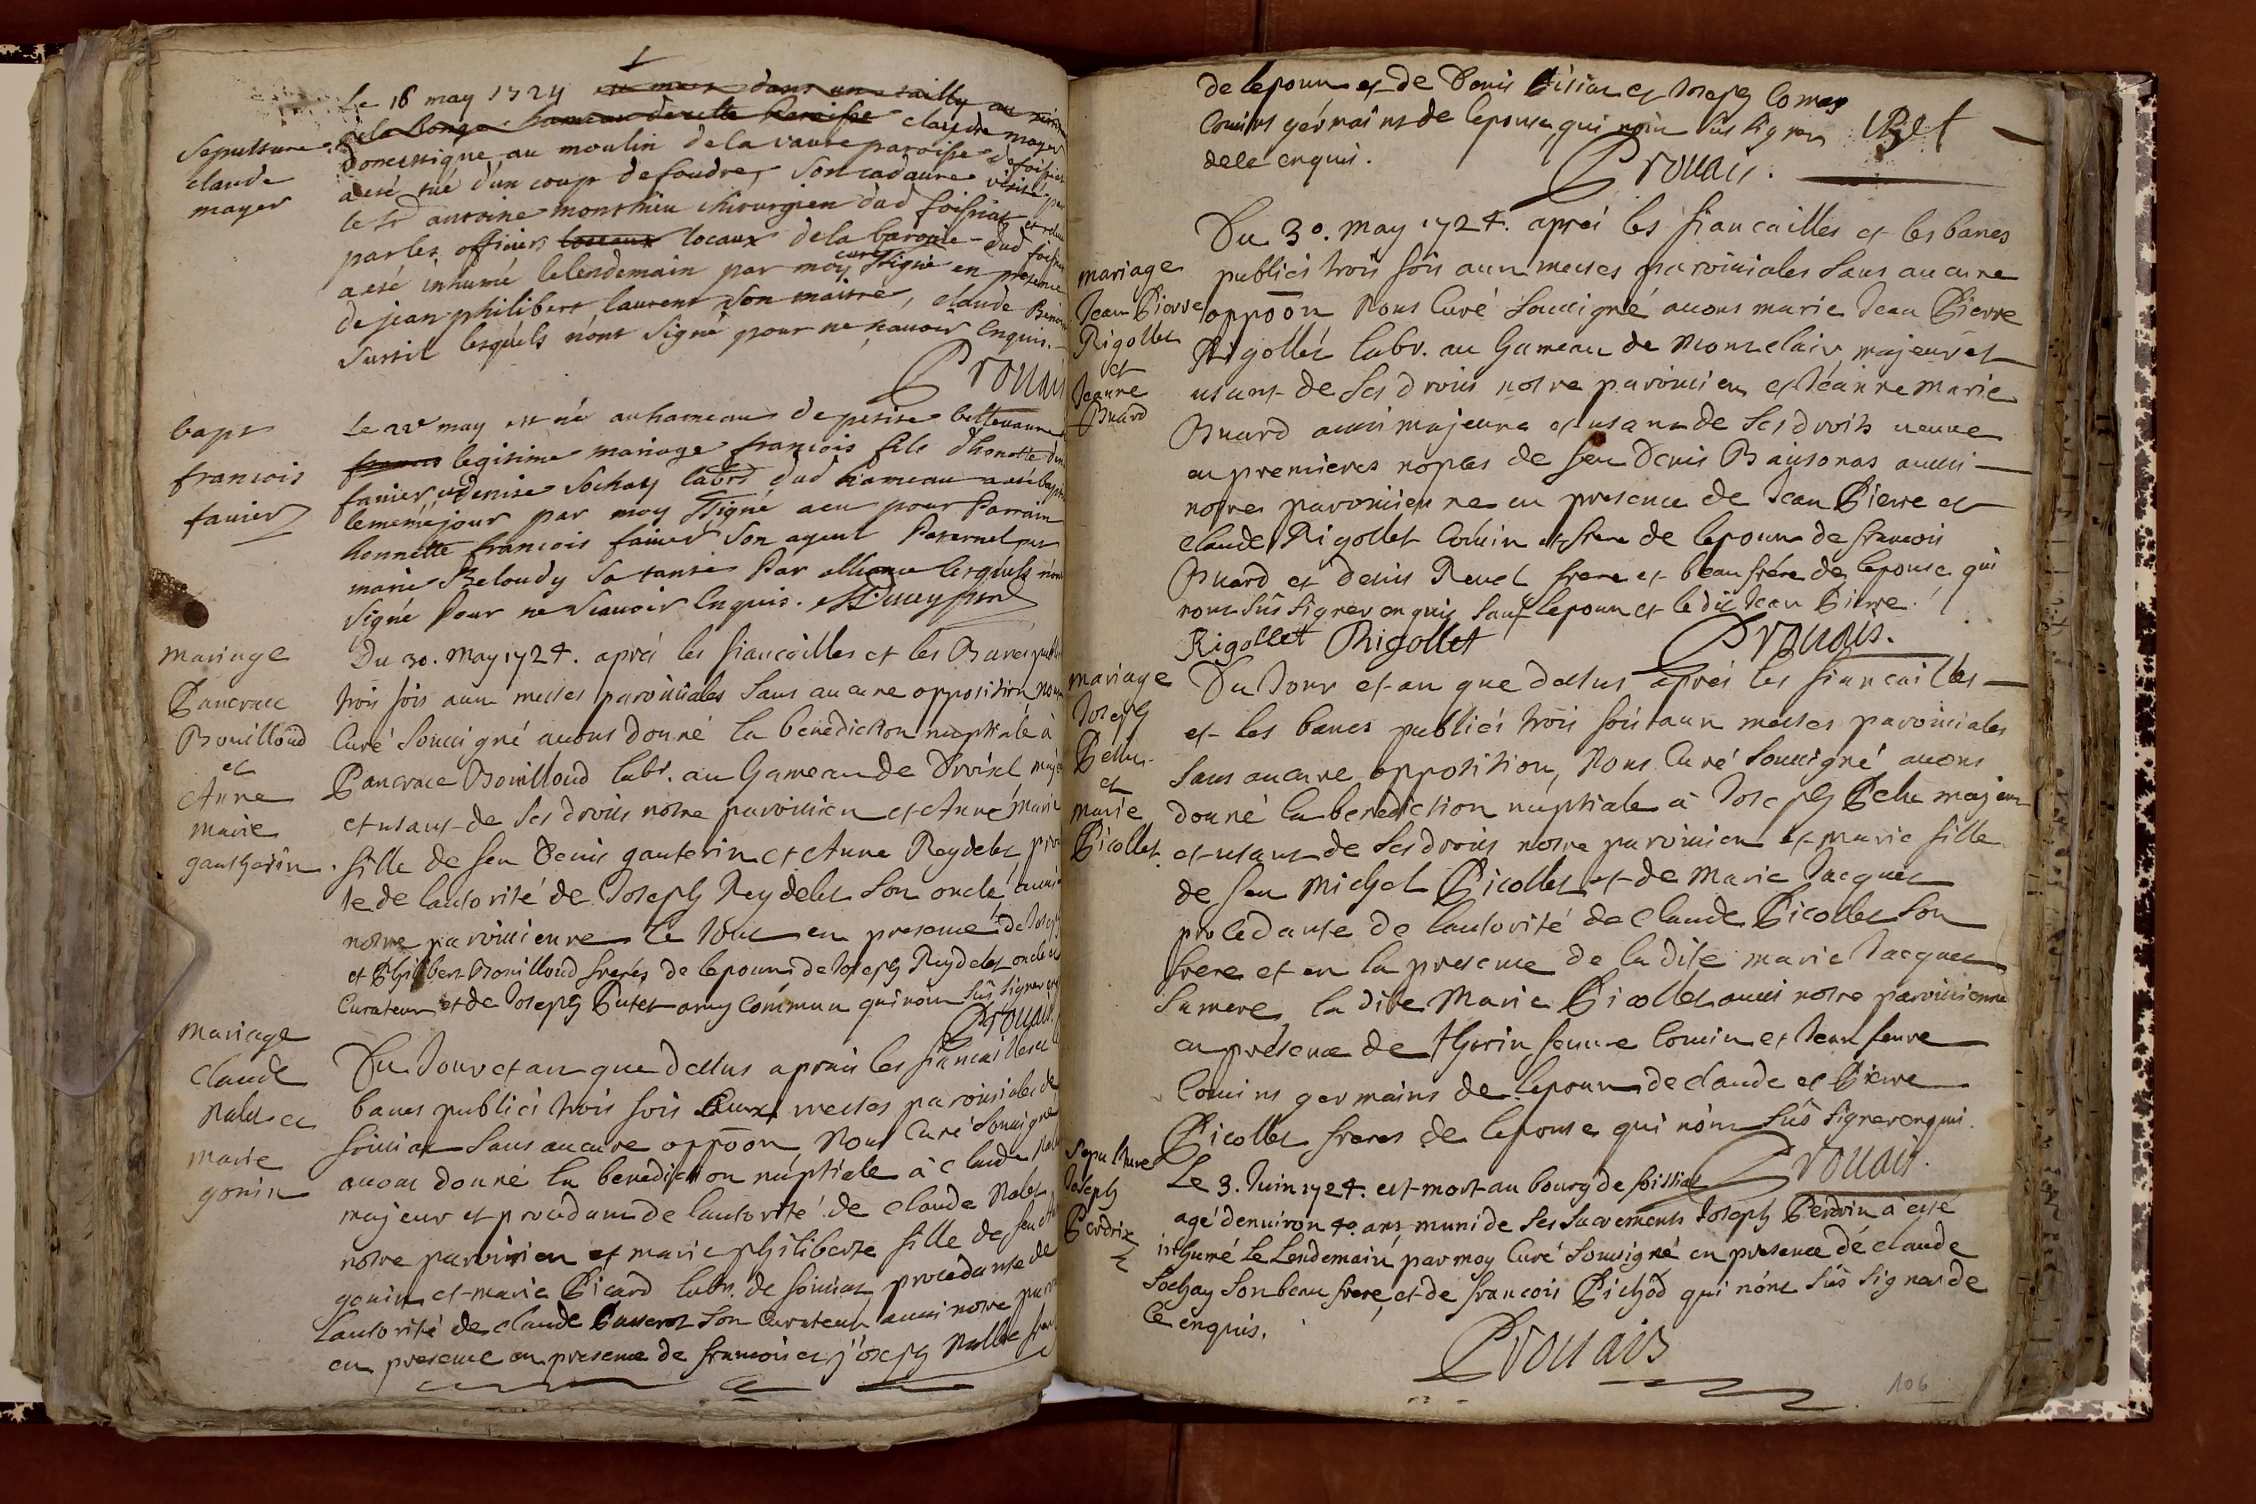 Sepulture
claude
mayer
Le 16 may 1724 est mort dans une tailly au
de la Longe hameau de cette Paroisse claude mayer
domestique au moulin de la vavre paroisse de foissiat
a esté tué d'un coup de foudre, son cadavre visité par
le Sr antoine monthieu chirurgien dud foissiat et
par les officiers locaux locaux de la baronie dud foissiat
a esté inhumé le lendemain par moy curé ssigné en presence
de jean philibert laurent son maitre, claude
lesquels n'ont signé pour ne sçavoir Enquis.
Prouais
bapt
francois
favier
Le may est né au hameau de petite bellevavre
francois legitime mariage francois fils d'honette
favier et denise Sochay labrs dud hameau a esté baptisé
le meme jour par moy ssigné a eu pour Parrain
honnette francois favier son ayeul Paternel et
marie Beloudy sa tante Par alliance lesquels n'ont
signé Pour ne scavoir Enquis.
mariage
Pancrace
Bouilloud
et
Anne
marie
gautherin
Du 30. May 1724. aprés les fiancailles et les Bancs publiés
trois fois aux messes paroissiales sans aucune opposition nous
Curé soussigné avons donné la benediction nuptiale à
Pancrace Bouilloud labr. au hameau de majeur
et usant de ses droits notre paroissien et Anne marie
fille de feu Denis gauterin et Anne Reydelet
te de lautorité de Joseph Reydelet son oncle aussi
notre paroissienne le tout en presence de Joseph
et Philibert Bouilloud freres de lepoux de Joseph Reydelet oncle et
Curateur et de Joseph Putet amy commun qui n'ont sûs signer enq
Prouais
mariage
claude
Nalet et
marie
gonin
Du Jour et an que dessus aprais les fiancailles et les
bancs publiés trois fois aux messes paroissiales de
foissiat sans aucune oppoon Nous Curé soussigné
avons donné la benediction nuptiale à Claude Nalet
majeur et procedant de lautorité de Claude Nalet
notre paroissien et marie philiberte fille de feu
gonin et marie Picard labr. de foissiat procedante de
Lautorité de claude son Curateur aussi notre
en presence en presence de francois et joseph Nallet
de lepoux et de Denis et Joseph Comas
Cousins germains de lepouse qui n'ont sûs signer
dele enquis.
Prouais.
mariage
Jean Pierre
Rigollet
et
Jeanne
Buard
Du 30. May 1724. aprés les fiancailles et les bancs
publiés trois fois aux messes paroissiales sans aucune
oppoon Nous Curé soussigné avons marié Jean Pierre
Rigollet labr. au hameau de Monteclair majeur et
usant de ses droits notre paroissien et Jeanne Marie
Buard aussi majeure et usante de ses droits veuve
en premieres nopces de feu Denis Baisonas aussi
notre paroissienne en presence de Jean Pierre et
claude Rigollet Cousin et frere de lepoux de francois
Buard et denis Revel frere et beau frére de lepouse qui
nont sûs signer enquis sauf lepoux et ledit Jean Pierre.
Rigollet Rigollet
Prouais.
mariage
Joseph
Pelus
et
marie
Picollet
Du Jour et an que dessus aprés les fiancailles
et les bancs publiés trois fois aux messes paroissiales
sans aucune opposition, Nous Curé soussigné avons
donné la benediction nuptiale à Joseph Pelu majeur
et usant de ses droits notre paroissien et marie fille
de feu Michel Picollet et de Marie Jacquet
procedante de lautorité de Claude Picollet son
frere et en la presence de la dite marie Jacquet
sa mere, la dite Marie Picollet aussi notre paroissienne
en présence de thorin feuvre Cousin et Jean feuvre
Cousins germains de lepoux de claude et Pierre
Picollet freres de lepouse qui n'ont sûs signer enqui.
Prouais.
Sepulture
Joseph
Perdrix
Le 3. Juin 1724. est mort au bourg de foissiat
agé d'environ 40. ans muni de ses sacrements Joseph Perdrix à esté
inhumé le Lendemain par moy Curé soussigné en presence de claude
Sochay son beau frere, et de francois Pichod qui n'ont sûs signer de
ce enquis.
Prouais
106